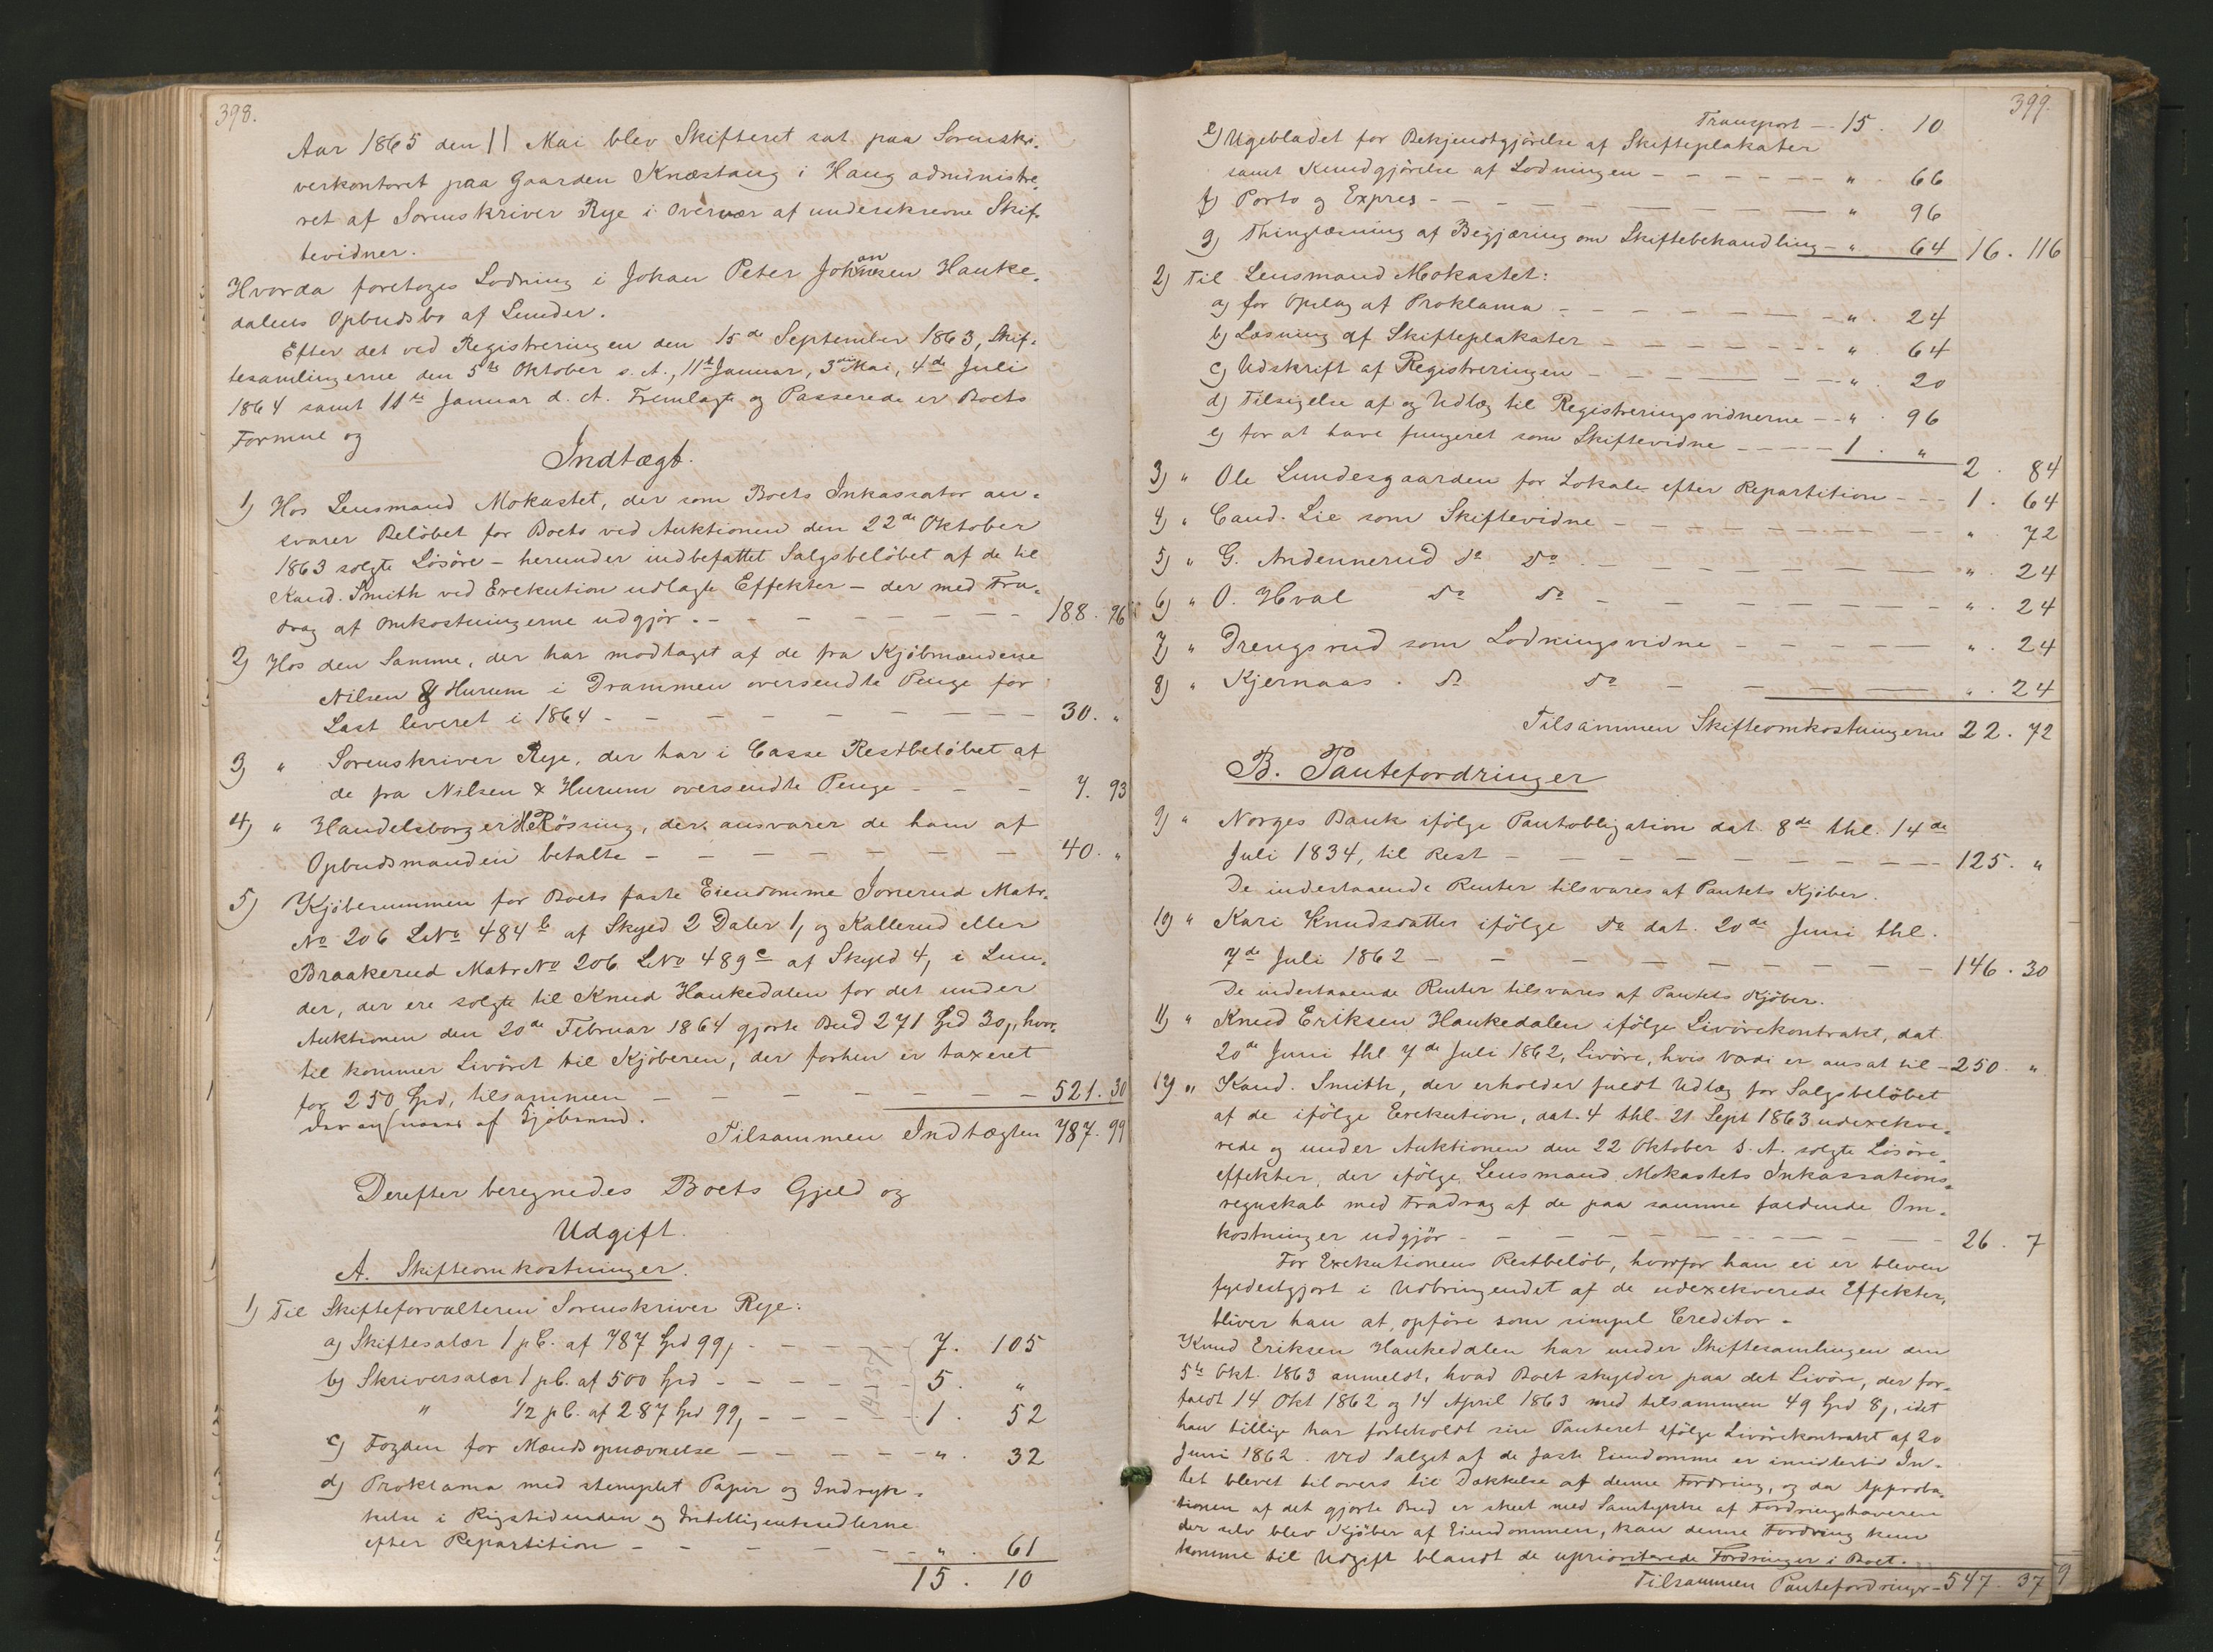 398.
Aar 1865 den 11 Mai blev Skifteret sat paa Sorenskri-
verkontoret paa Gaarden Knæstang i Haug administre-
ret af Sorenskriver Rye i Overvær af underskrevne Skif-
tevidner.
Hvorda foretoges Lodning i Johan Peter Johansen Hauke-
dalens Opbudsbo af Lunder.
Efter det ved Registreringen den 15de September 1863, Skif-
tesamlingerne den 5te Oktober s. A., 11te Januar, 3die Mai, 4de Juli
1864 samt 11te Januar d. A. Fremlagte og Passerede er Boets
Formue og
Indtægt.
1) Hos Lensmand Mokastet, der som Boets Inkassator an-
svarer Beløbet for Boets ved Auktionen den 22de Oktober
1863 solgte Løsøre - herunder indbefattet Salgsbeløbet af de til
Kand. Smith ved Exekution udlagte Effekter - der med Fra-
drag af Omkostningerne udgjør - 188. 96
2) Hos den Samme, der har modtaget af de fra Kjøbmændene
Nilsen & Hurum i Drammen oversendte Penge for
Last leveret i 1864 - 30. "
3) " Sorenskriver Rye, der har i Casse Restbeløbet af
de fra Nilsen & Hurum oversendte Penge - 7. 93
4) " Handelsborger Røsing, der ansvarer de ham af
Opbudsmanden betalte - 40. "
5) Kjøbesummen for Boets faste Eiendomme Jonerud Matr.
No 206 LNo 484b af Skyld 2 Daler 1, og Kallerud eller
Braakerud Matr No 206 LNo 489c af Skyld 4, i Lun-
der, der ere solgte til Knud Haukedalen for det under
Auktionen den 20de Februar 1864 gjorte Bud 271 Spd 30, hvor-
til kommer Livøret til Kjøberen, der forhen er taxeret
for 250 Spd, tilsammen - 521. 30
der af Kjøberen.
Tilsammen Indtægten 787. 99
Derefter beregnedes Boets Gjeld og
Udgift.
A. Skifteomkostninger.
1) Til Skifteforvalteren Sorenskriver Rye:
a) Skiftesalær 1 pC. af 787 Spd 99, - 7. 105
b) Skriversalær 1 pC. af 500 Spd - 5. "
" 1/2 pC. af 287 Spd 99, - 1. 52
14. 37
c) Fogden for Mændsopnævnelse - ". 32
d) Proklama med stemplet Papir og Indryk-
kelse i Rigstidenden og Intelligentssedlerne
efter Repartition - ". 61
15. 10
399.
Transport - 15. 10
e) Ugebladet for Bekjendtgjørelse af Skifteplakater
samt Kundgjørelse af Lodningen - ". 66
f) Porto og Expres - ". 96
g) Thinglæsning af Begjæring om Skiftebehandling - ". 64 16. 116
2) Til Lensmand Mokastet:
a) for Opslag af Proklama - ". 24
b) Læsning af Skifteplakater - ". 64
c) Udskrift af Registreringen - ". 20
d) Tilsigelse af og Udlæg til Registreringsvidnerne - ". 96
e) for at have fungeret som Skiftevidne - 1. " 2. 84
3) " Ole Lundesgaarden for Lokale efter Repartition - 1. 64
4) " Cand. Lie som Skiftevidne - ". 72
5) " G. Andennerud do do - ". 24
6) " O. Hval do do - ". 24
7) " Drengsrud som Lodningsvidne - ". 24
8) " Kjernaas do do - ". 24
Tilsammen Skifteomkostningerne 22. 72
B. Pantefordringer
9) " Norges Bank ifølge Pantobligation dat. 8de thl. 14de
Juli 1834, til Rest - 125. "
De indestaaende Renter tilsvares af Pantets Kjøber.
10) " Kari Knudsdatter ifølge do dat. 20de Juni thl.
7de Juli 1862 - 146. 30
De indestaaende Renter tilsvares af Pantets Kjøber.
11) " Knud Eriksen Haukedalen ifølge Livørekontrakt, dat.
20de Juni thl 7de Juli 1862, Livøre, hvis Værdi er ansat til - 250. "
12) " Kand. Smith, der erholder fuldt Udlæg for Salgsbeløbet
af de ifølge Exekution, dat. 4 thl. 21 Sept 1863 udexekve-
rede og under Auktionen den 22 Oktober s. A. solgte Løsøre-
effekter, der ifølge Lensmand Mokastets Inkassations-
regnskab med Fradrag af de paa samme faldende Om-
kostninger udgjør - 26. 7
For Exekutionens Restbeløb, hvorfor han ei er bleven
fyldestgjort i Udbringendet af de udexekverede Effekter,
bliver han at opføre som simpel Creditor -
Knud Eriksen Haukedalen har under Skiftesamlingen den
5te Okt. 1863 anmeldt, hvad Boet skylder paa det Livøre, der for-
faldt 14 Okt 1862 og 14 April 1863 med tilsammen 49 Spd 8, idet
han tillige har forbeholdt sin Panteret ifølge Livørekontrakt af 20
Juni 1862. Ved Salget af de faste Eiendomme er imidlertid In-
tet blevet tilovers til Dækkelse af denne Fordring, og da Approba-
tionen af det gjorte Bud er skeet med Samtykke af Fordringshaveren
der selv blev Kjøber af Eiendommen, kan denne Fordring kun
komme til Udgift blandt de uprioriterede Fordringer i Boet.
Tilsammen Pantefordringer - 547. 37